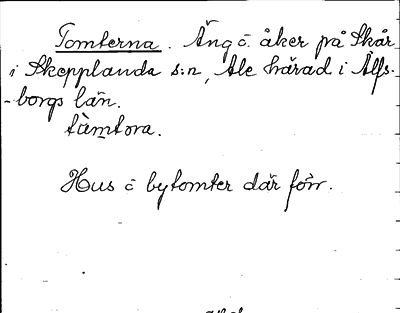 Tomterna. Äng o. åker på Skår
i Skepplanda s:n, Ale härad i Älfs-
-borgs län.
tàmtora.
Hus o bytomter där förr.